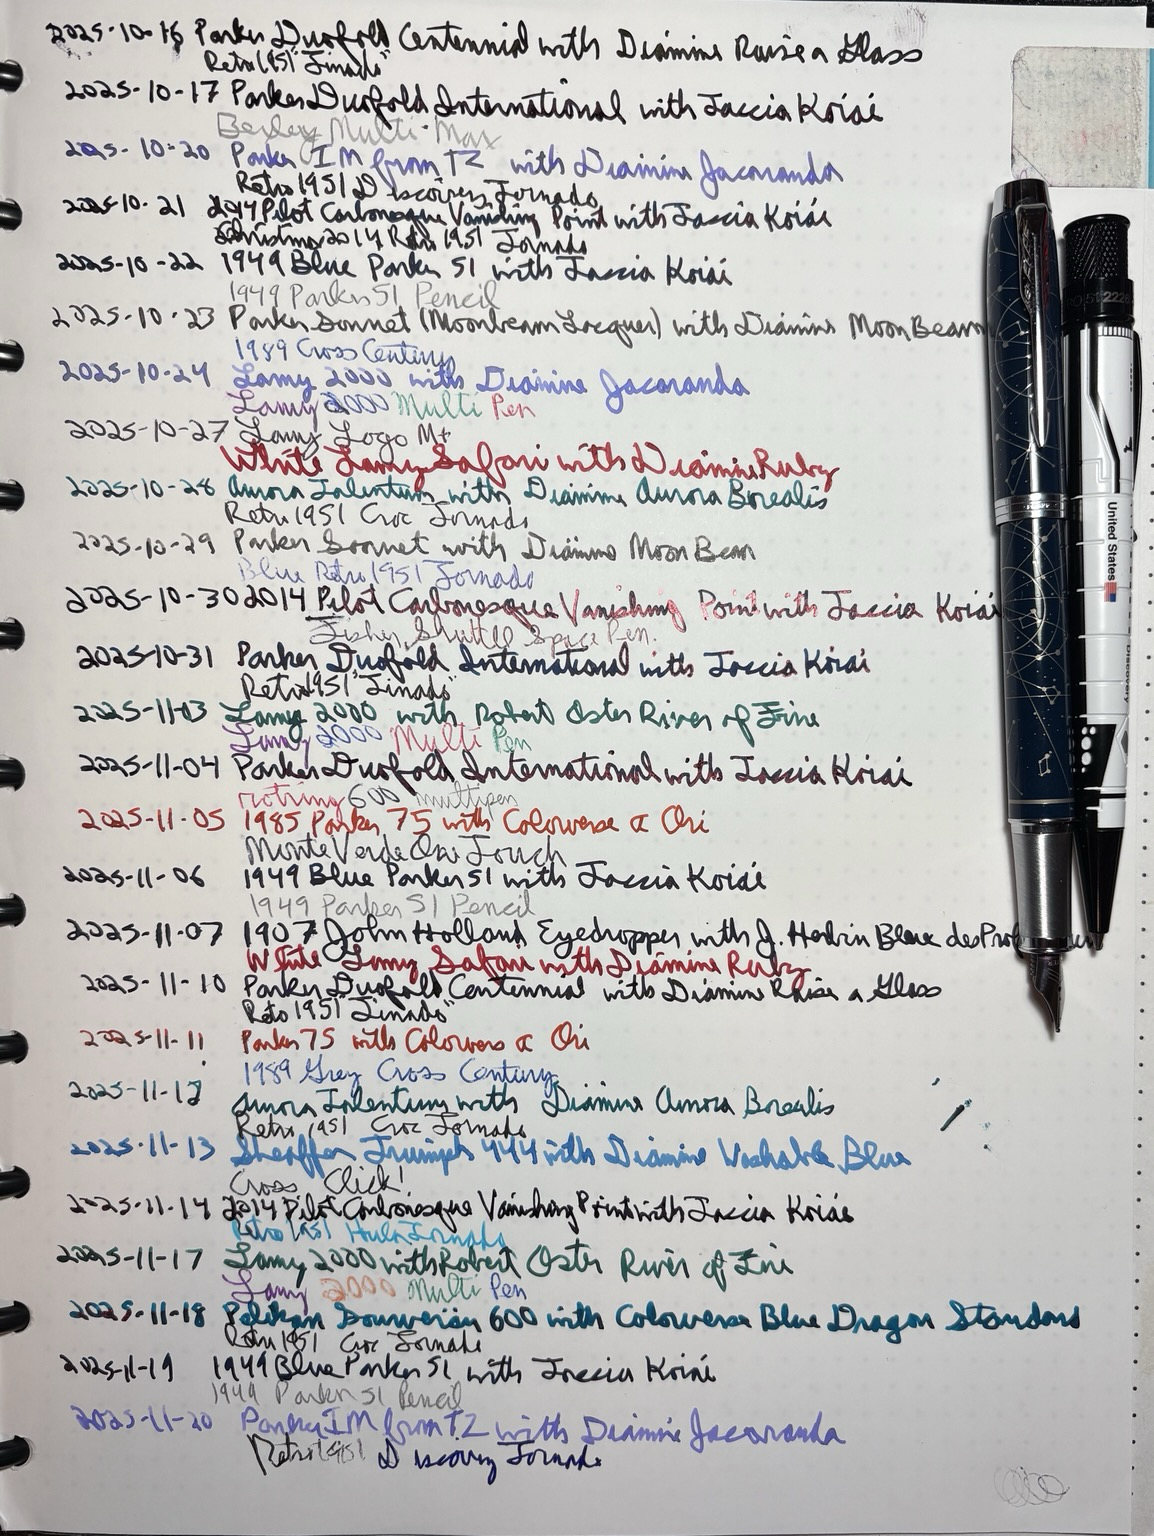 2025-10-16 Parker Duofold Centennial with Diamine Raise a Glass
Retro 1951 "Jinado"
2025-10-17 Parker Duofold International with Taccia Koiai
Bexley Multi-Max
2025-10-20 Parker IM from TZ with Diamine Jacaranda
Retro 1951 Discovery Tornado
2025-10-21 2014 Pilot Carbonesque Vanishing Point with Taccia Koiai
Christmas 2014 Retro 1951 Tornado
2025-10-22 1949 Blue Parker 51 with Taccia Koiai
1949 Parker 51 Pencil
2025-10-23 Parker Sonnet (Moonbeam Lacquer) with Diamine Moon Beam
1989 Cross Century
2025-10-24 Lamy 2000 with Diamine Jacaranda
Lamy 2000 Multi Pen
2025-10-27 Lamy Logo M+
White Lamy Safari with Diamine Ruby
2025-10-28 Aurora Talentum with Diamine Aurora Borealis
Retro 1951 Croc Tornado
2025-10-29 Parker Sonnet with Diamine Moon Beam
Blue Retro 1951 Tornado
2025-10-30 2014 Pilot Carbonesque Vanishing Point with Taccia Koiai
Fisher Shuttle Space Pen.
2025-10-31 Parker Duofold International with Taccia Koiai
Retro 1951 "Jinado"
2025-11-03 Lamy 2000 with Robert Oster River of Fire
Lamy 2000 Multi Pen
2025-11-04 Parker Duofold International with Taccia Koiai
rotring 600 multipen
2025-11-05 1985 Parker 75 with Colorverse α Ori
MonteVerde One Touch
2025-11-06 1949 Blue Parker 51 with Taccia Koiai
1949 Parker 51 Pencil
2025-11-07 1907 John Holland Eyedropper with J. Herbin Bleue des
White Lamy Safari with Diamine Ruby
2025-11-10 Parker Duofold Centennial with Diamine Raise a Glass
Retro 1951 "Jinado"
2025-11-11 Parker 75 with Colorverse α Ori
1989 Grey Cross Century
2025-11-12 Aurora Talentum with Diamine Aurora Borealis
Retro 1951 Croc Tornado
2025-11-13 Sheaffer Triumph 444 with Diamine Washable Blue
Cross Click!
2025-11-14 2014 Pilot Carbonesque Vanishing Point with Taccia Koiai
Retro 1951 Hula Tornado
2025-11-17 Lamy 2000 with Robert Oster River of Fire
Lamy 2000 Multi Pen
2025-11-18 Pelikan Souverän 600 with Colorverse Blue Dragon Standard
Retro 1951 Croc Tornado
2025-11-19 1949 Blue Parker 51 with Taccia Koiai
1949 Parker 51 Pencil
2025-11-20 Parker IM from TZ with Diamine Jacaranda
Retro 1951 Discovery Tornado
United States
Discovery